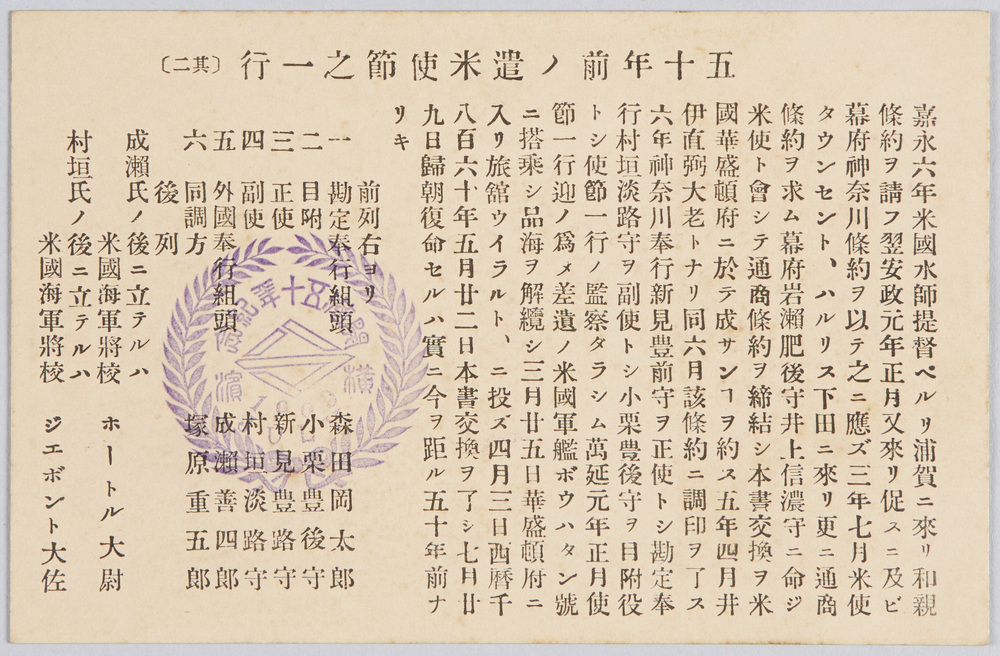 五十年前ノ遣米使節之一行〔其二〕
嘉永六年米國水師提督ペルリ浦賀ニ來リ和親
條約ヲ請フ翌安政元年正月又來リ促スニ及ビ
幕府神奈川條約ヲ以テ之ニ應ズ三年七月米使
タウンセント、ハルリス下田ニ來リ更ニ通商
條約ヲ求ム幕府岩瀨肥後守井上信濃守ニ命ジ
米使ト會シテ通商條約ヲ締結シ本書交換ヲ米
國華盛頓府ニ於テ成サンヿヲ約ス五年四月井
伊直弼大老トナリ同六月該條約ニ調印ヲ了ス
六年神奈川奉行新見豊前守ヲ正使トシ勘定奉
行村垣淡路守ヲ副使トシ小栗豊後守ヲ目附役
トシ使節一行ノ監察タラシム萬延元年正月使
節一行迎ノ爲メ差遣ノ米國軍艦ボウハタン號
ニ搭乘シ品海ヲ解纜シ三月廿五日華盛頓府ニ
入リ旅舘ウイラルト、ニ投ズ四月三日西曆千
八百六十年五月廿二日本書交換ヲ了シ七月廿
九日歸朝復命セルハ實ニ今ヲ距ル五十年前ナ
リキ
前列右ヨリ
一 勘定奉行組頭 森田岡太郎
二 目附 小栗豊後守
三 正使 新見豊路守
四 副使 村垣淡路守
五 外國奉行組頭 成瀨善四郎
六 同調方 塚原重五郎
後列
成瀨氏ノ後ニ立テルハ
米國海軍將校 ホートル大尉
村垣氏ノ後ニ立テルハ
米國海軍將校 ジエボント大佐